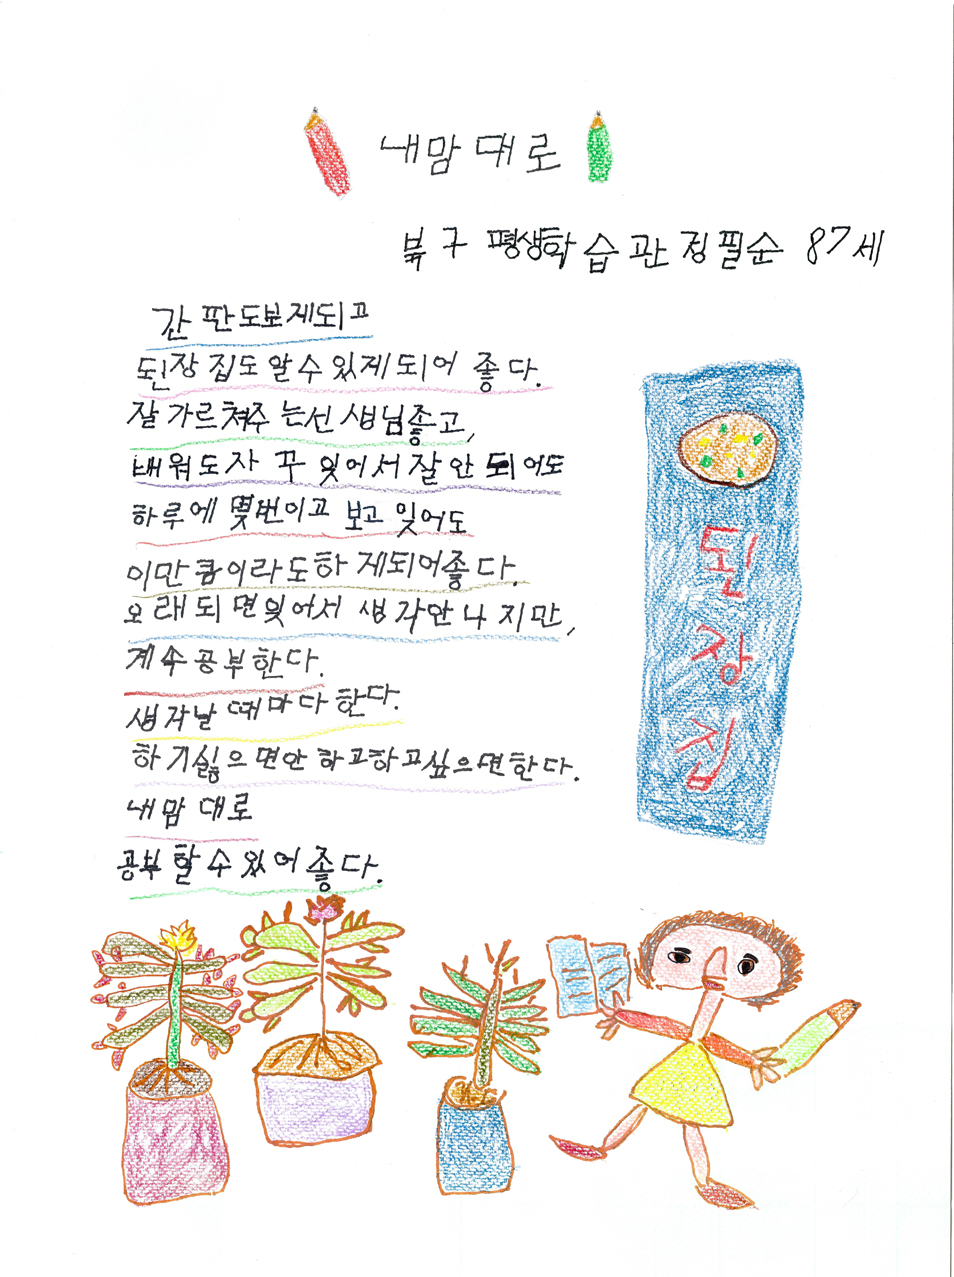 내맘대로
북구 평생학습관 정필순 87세
간판도보게되고
된장집도 알수있게되어 좋다.
잘 가르쳐주는선생님좋고,
배워도자꾸 잊어서잘안되어도
하루에 몇번이고 보고 잊어도
이만큼이라도하게되어좋다.
오래되면잊어서 생각안나지만,
계속공부한다.
생각날때마다한다.
하기싫으면안하고하고싶으면한다.
내맘대로
공부할수있어좋다.
된장집